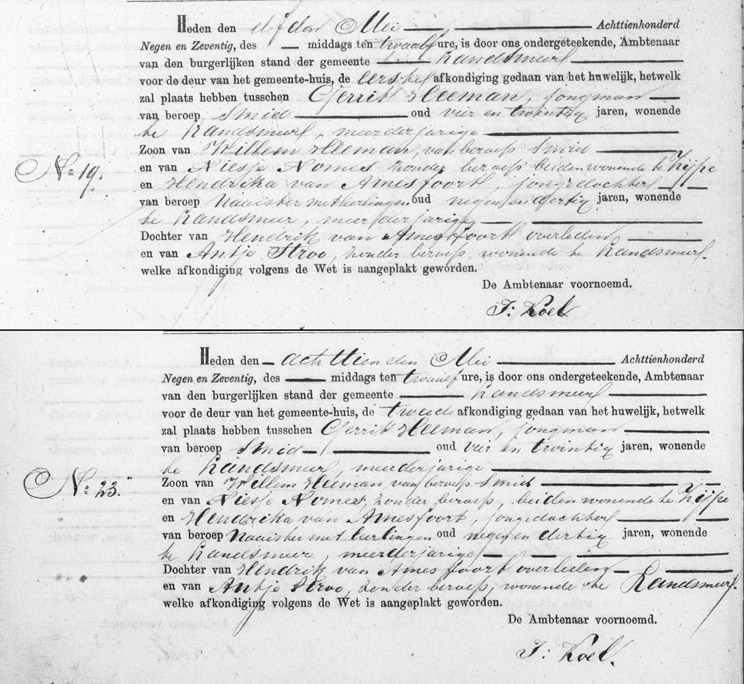 Heden den elfden Mei Achttienhonderd
Negen en Zeventig, des — middags ten twaalf ure, is door ons ondergeteekende, Ambtenaar
van den burgerlijken stand der gemeente Landsmeer
voor de deur van het gemeente-huis, de eerste afkondiging gedaan van het huwelijk, hetwelk
zal plaats hebben tusschen Gerrit Heeman, jongman
van beroep Smid oud vier en twintig jaren, wonende
te Landsmeer, meerderjarige
Zoon van Willem Heeman, van beroep Smid
en van Niesje Nomes, zonder beroep beiden wonende te Zijpe
No. 19.
en Hendrika van Amesfoort, jongedochter
van beroep Naaister met leerlingen oud negen en dertig jaren, wonende
te Landsmeer, meerderjarig
Dochter van Hendrik van Amesfoort overleden
en van Antje Stroo, zonder beroep, wonende te Landsmeer.
welke afkondiging volgens de Wet is aangeplakt geworden.
De Ambtenaar voornoemd.
J: Koel
Heden den achttienden Mei Achttienhonderd
Negen en Zeventig, des — middags ten twaalf ure, is door ons ondergeteekende, Ambtenaar
van den burgerlijken stand der gemeente Landsmeer
voor de deur van het gemeente-huis, de tweede afkondiging gedaan van het huwelijk, hetwelk
zal plaats hebben tusschen Gerrit Heeman, jongman
van beroep Smid oud vier en twintig jaren, wonende
te Landsmeer, meerderjarige
Zoon van Willem Heeman van beroep Smid
en van Niesje Nomes, zonder beroep, beiden wonende te Zijpe
No. 23.
en Hendrika van Amesfoort, jongedochter
van beroep Naaister met leerlingen oud negen en dertig jaren, wonende
te Landsmeer, meerderjarige
Dochter van Hendrik van Amesfoort overleden
en van Antje Stroo, zonder beroep, wonende te Landsmeer.
welke afkondiging volgens de Wet is aangeplakt geworden.
De Ambtenaar voornoemd.
J: Koel.